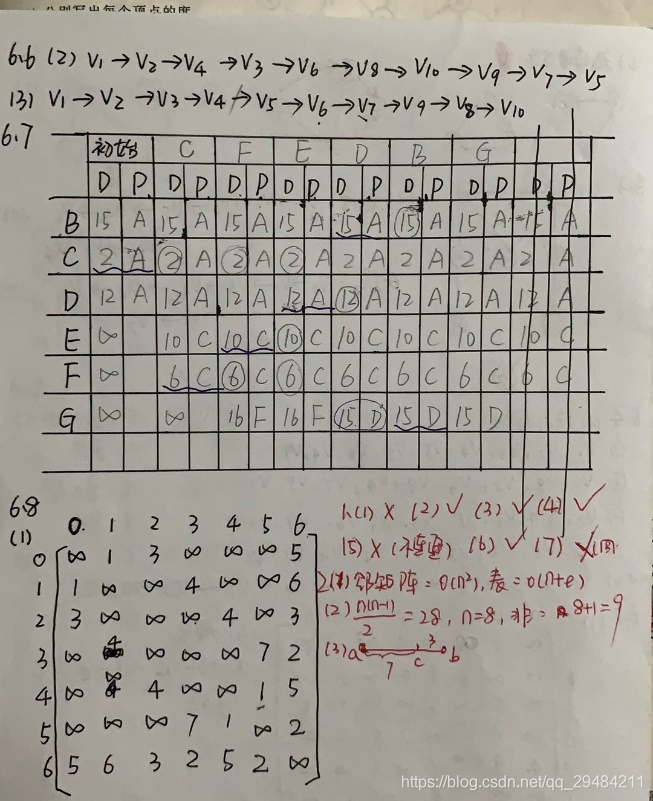 分别写出每个顶点的度
6.6 (2) V1→V2→V4→V3→V6→V8→V10→V9→V7→V5
(3) V1→V2→V3→V4→V5→V6→V7→V9→V8→V10
6.7
初始 C F E D B G
D P D P D P D P D P D P D P D P
B 15 A 15 A 15 A 15 A 15 A 15 A 15 A 15 A
C 2 A 2 A 2 A 2 A 2 A 2 A 2 A 2 A
D 12 A 12 A 12 A 12 A 12 A 12 A 12 A 12 A
E ∞ 10 C 10 C 10 C 10 C 10 C 10 C 10 C
F ∞ 6 C 6 C 6 C 6 C 6 C 6 C 6 C
G ∞ ∞ 16 F 16 F 15 D 15 D 15 D
6.8
(1)
0 1 2 3 4 5 6
0 ∞ 1 3 ∞ ∞ ∞ 5
1 1 ∞ ∞ 4 ∞ ∞ 6
2 3 ∞ ∞ ∞ 4 ∞ 3
3 ∞ 4 ∞ ∞ ∞ 7 2
4 ∞ ∞ 4 ∞ ∞ 1 5
5 ∞ ∞ ∞ 7 1 ∞ 2
6 5 6 3 2 5 2 ∞
1.(1) × (2) ✓ (3) ✓ (4) ✓
(5) × (连通) (6) ✓ (7) ×
2(1) 邻矩阵=O(n²), 表=O(n+e)
(2) n(n-1)/2 = 28, n=8, 非= 8+1=9
(3) a 7 c 3 b
https://blog.csdn.net/qq_29484211